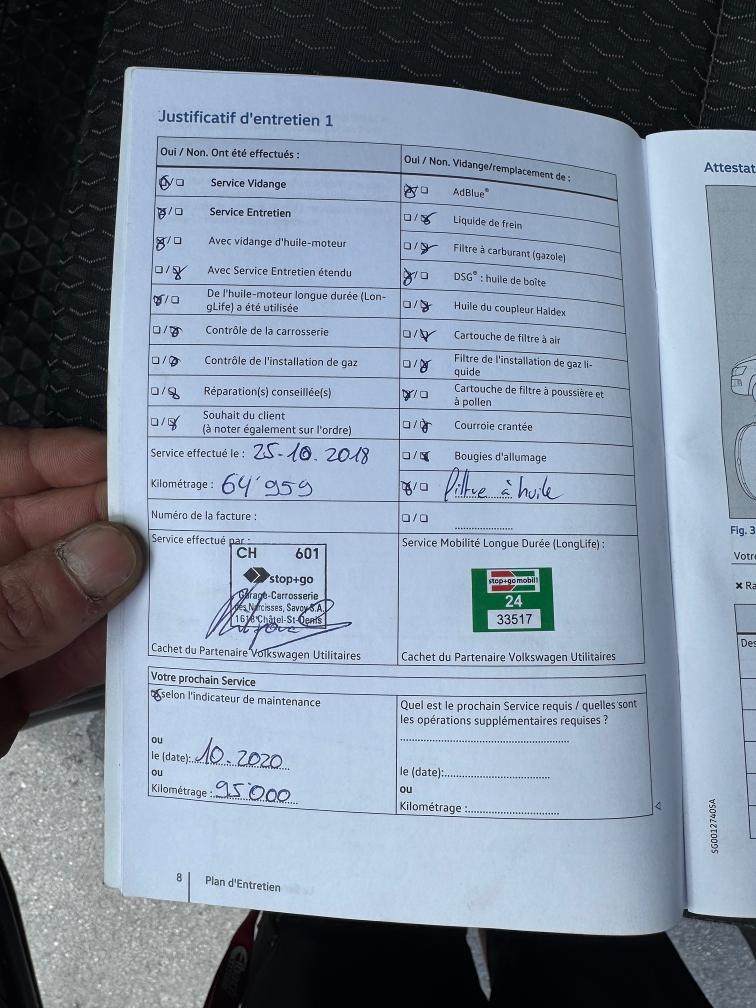 Justificatif d'entretien 1
Oui / Non. Ont été effectués :
☒/☐ Service Vidange
☒/☐ Service Entretien
☒/☐ Avec vidange d'huile-moteur
☐/☒ Avec Service Entretien étendu
☒/☐ De l'huile-moteur longue durée (Lon-
gLife) a été utilisée
☐/☒ Contrôle de la carrosserie
☐/☒ Contrôle de l'installation de gaz
☐/☒ Réparation(s) conseillée(s)
☐/☒ Souhait du client
(à noter également sur l'ordre)
Service effectué le : 25-10.2018
Kilométrage : 64'959
Numéro de la facture :
Oui / Non. Vidange/remplacement de :
☒/☐ AdBlue®
☐/☒ Liquide de frein
☐/☒ Filtre à carburant (gazole)
☒/☐ DSG® : huile de boîte
☐/☒ Huile du coupleur Haldex
☐/☒ Cartouche de filtre à air
☐/☒ Filtre de l'installation de gaz li-
quide
☒/☐ Cartouche de filtre à poussière et
à pollen
☐/☒ Courroie crantée
☐/☒ Bougies d'allumage
☒/☐ filtre à huile
☐/☐ ....................
Service effectué par :
CH 601
stop+go
Garage-Carrosserie
des Narcisses, Savoy S.A.
1618 Châtel-St-Denis
Cachet du Partenaire Volkswagen Utilitaires
Service Mobilité Longue Durée (LongLife) :
stop+gomobil
24
33517
Cachet du Partenaire Volkswagen Utilitaires
Votre prochain Service
☒ selon l'indicateur de maintenance
ou
le (date): 10.2020
ou
Kilométrage : 95'000
Quel est le prochain Service requis / quelles sont
les opérations supplémentaires requises ?
le (date):
ou
Kilométrage :
8 Plan d'Entretien
Attestat
Fig. 3
Votre
✖ Ra
Des
SG0012740SA